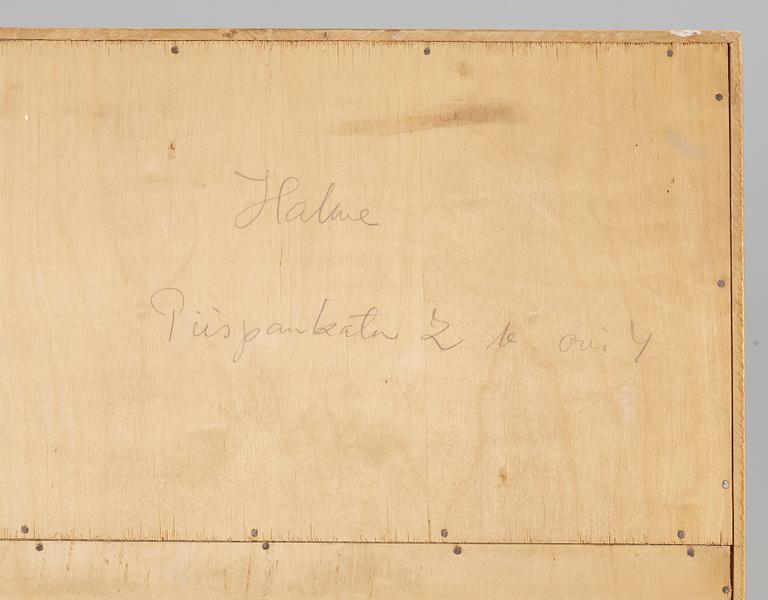 Halme
Piispankatu 2 b ovi 4